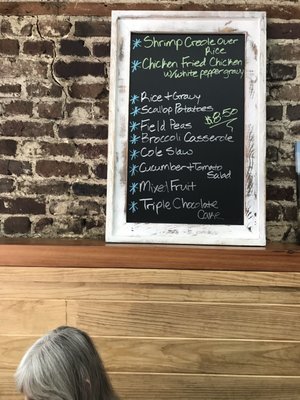 * Shrimp Creole Over
Rice
* Chicken Fried Chicken
w/white pepper gravy
* Rice + Gravy
* Scallop Potatoes
* Field Peas
$8.50
* Broccoli Casserole
* Cole Slaw
* Cucumber + Tomato
Salad
* Mixed Fruit
* Triple Chocolate
Cake